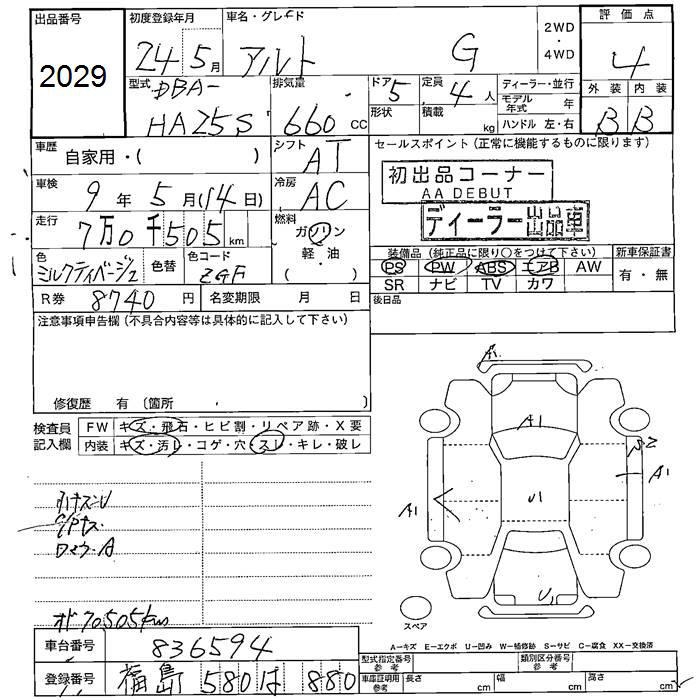 出品番号 初度登録年月 車名・グレード 2WD ・ 4WD 評価点
2029 24 5月 アルト G 4
型式 DBA- 排気量 ドア 5 定員 4人 ディーラー・並行 外装 内装
HA25S 660 CC 形状 積載 kg モデル年式 年 B B
ハンドル 左・右
車歴 自家用・( ) シフト AT セールスポイント (正常に機能するものに限ります)
車検 9年 5月(14日) 冷房 AC 初出品コーナー
AA DEBUT
走行 7万0千505km 燃料 ガソリン ディーラー出品車
軽・油
( )
色 ミルクティベージュ 色替 色コード ZGF 装備品 (純正品に限り○をつけて下さい) 新車保証書
PS PW ABS エアB AW 有・無
SR ナビ TV カワ
R券 8740円 名変期限 月 日 後日品
注意事項申告欄 (不具合内容等は具体的に記入して下さい)
修復歴 有 〔箇所 〕
検査員 FW キズ・飛石・ヒビ割・リペア跡・X要
記入欄 内装 キズ・汚レ・コゲ・穴・スレ・キレ・破レ
A1
A1
S2
A1
U1
A1
U1
スペア
オド70505km
A−キズ E−エクボ U−凹み W−補修跡 S−サビ C−腐食 XX−交換済
車台番号 836594 型式指定番号 参考 類別区分番号 参考
登録番号 福島 580 は 880 車庫証明用 参考 長さ cm 幅 cm 高さ cm